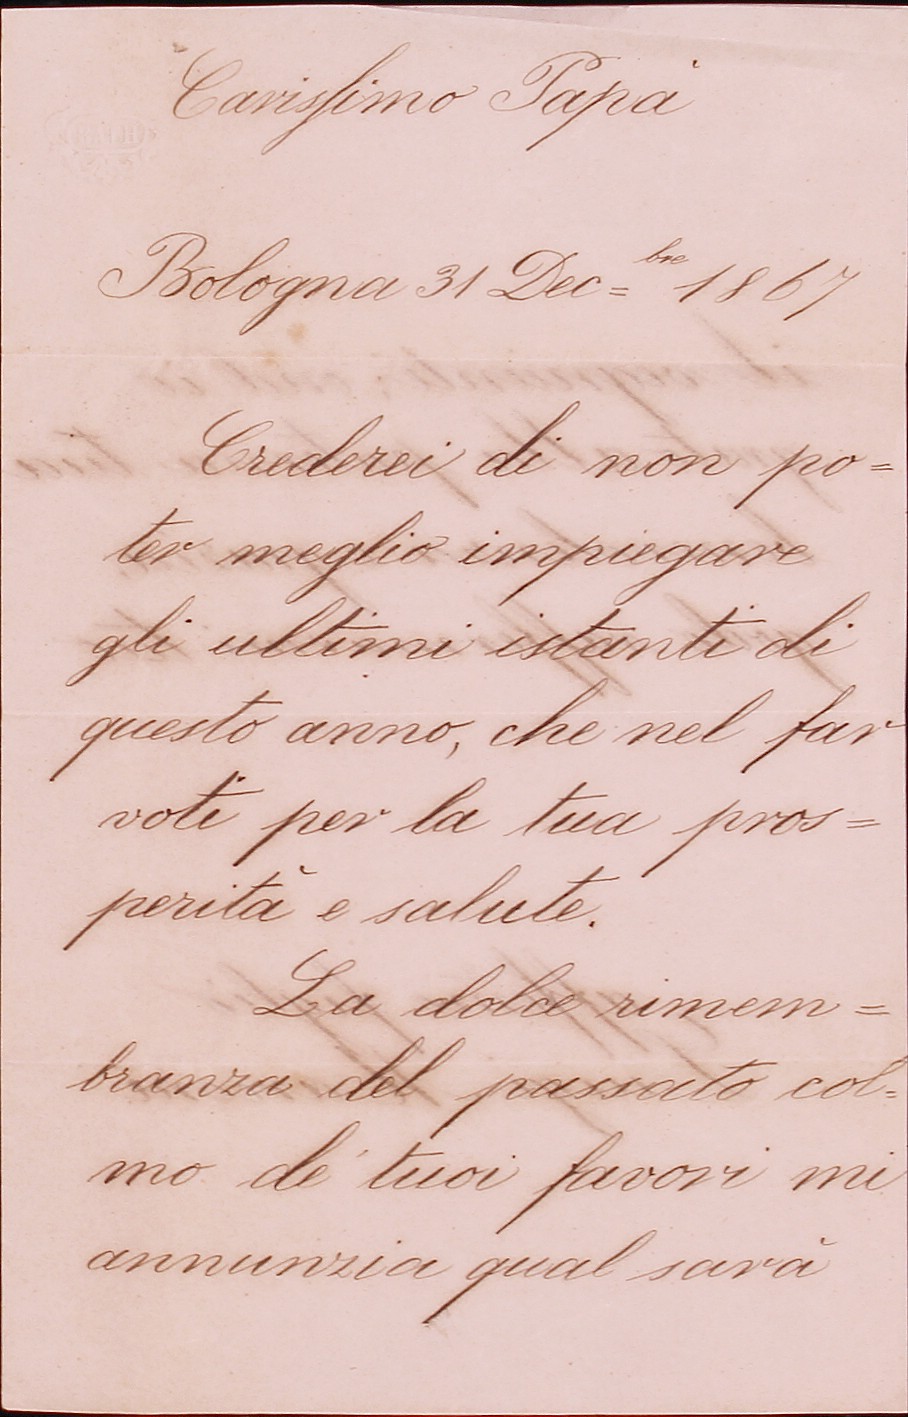 Carissimo Papà
Bologna 31 Dec=bre 1867
Crederei di non po=
ter meglio impiegare
gli ultimi istanti di
questo anno, che nel far
voti per la tua pros=
perità e salute.
La dolce rimem=
branza del passato col=
mo de' tuoi favori mi
annunzia qual sarà